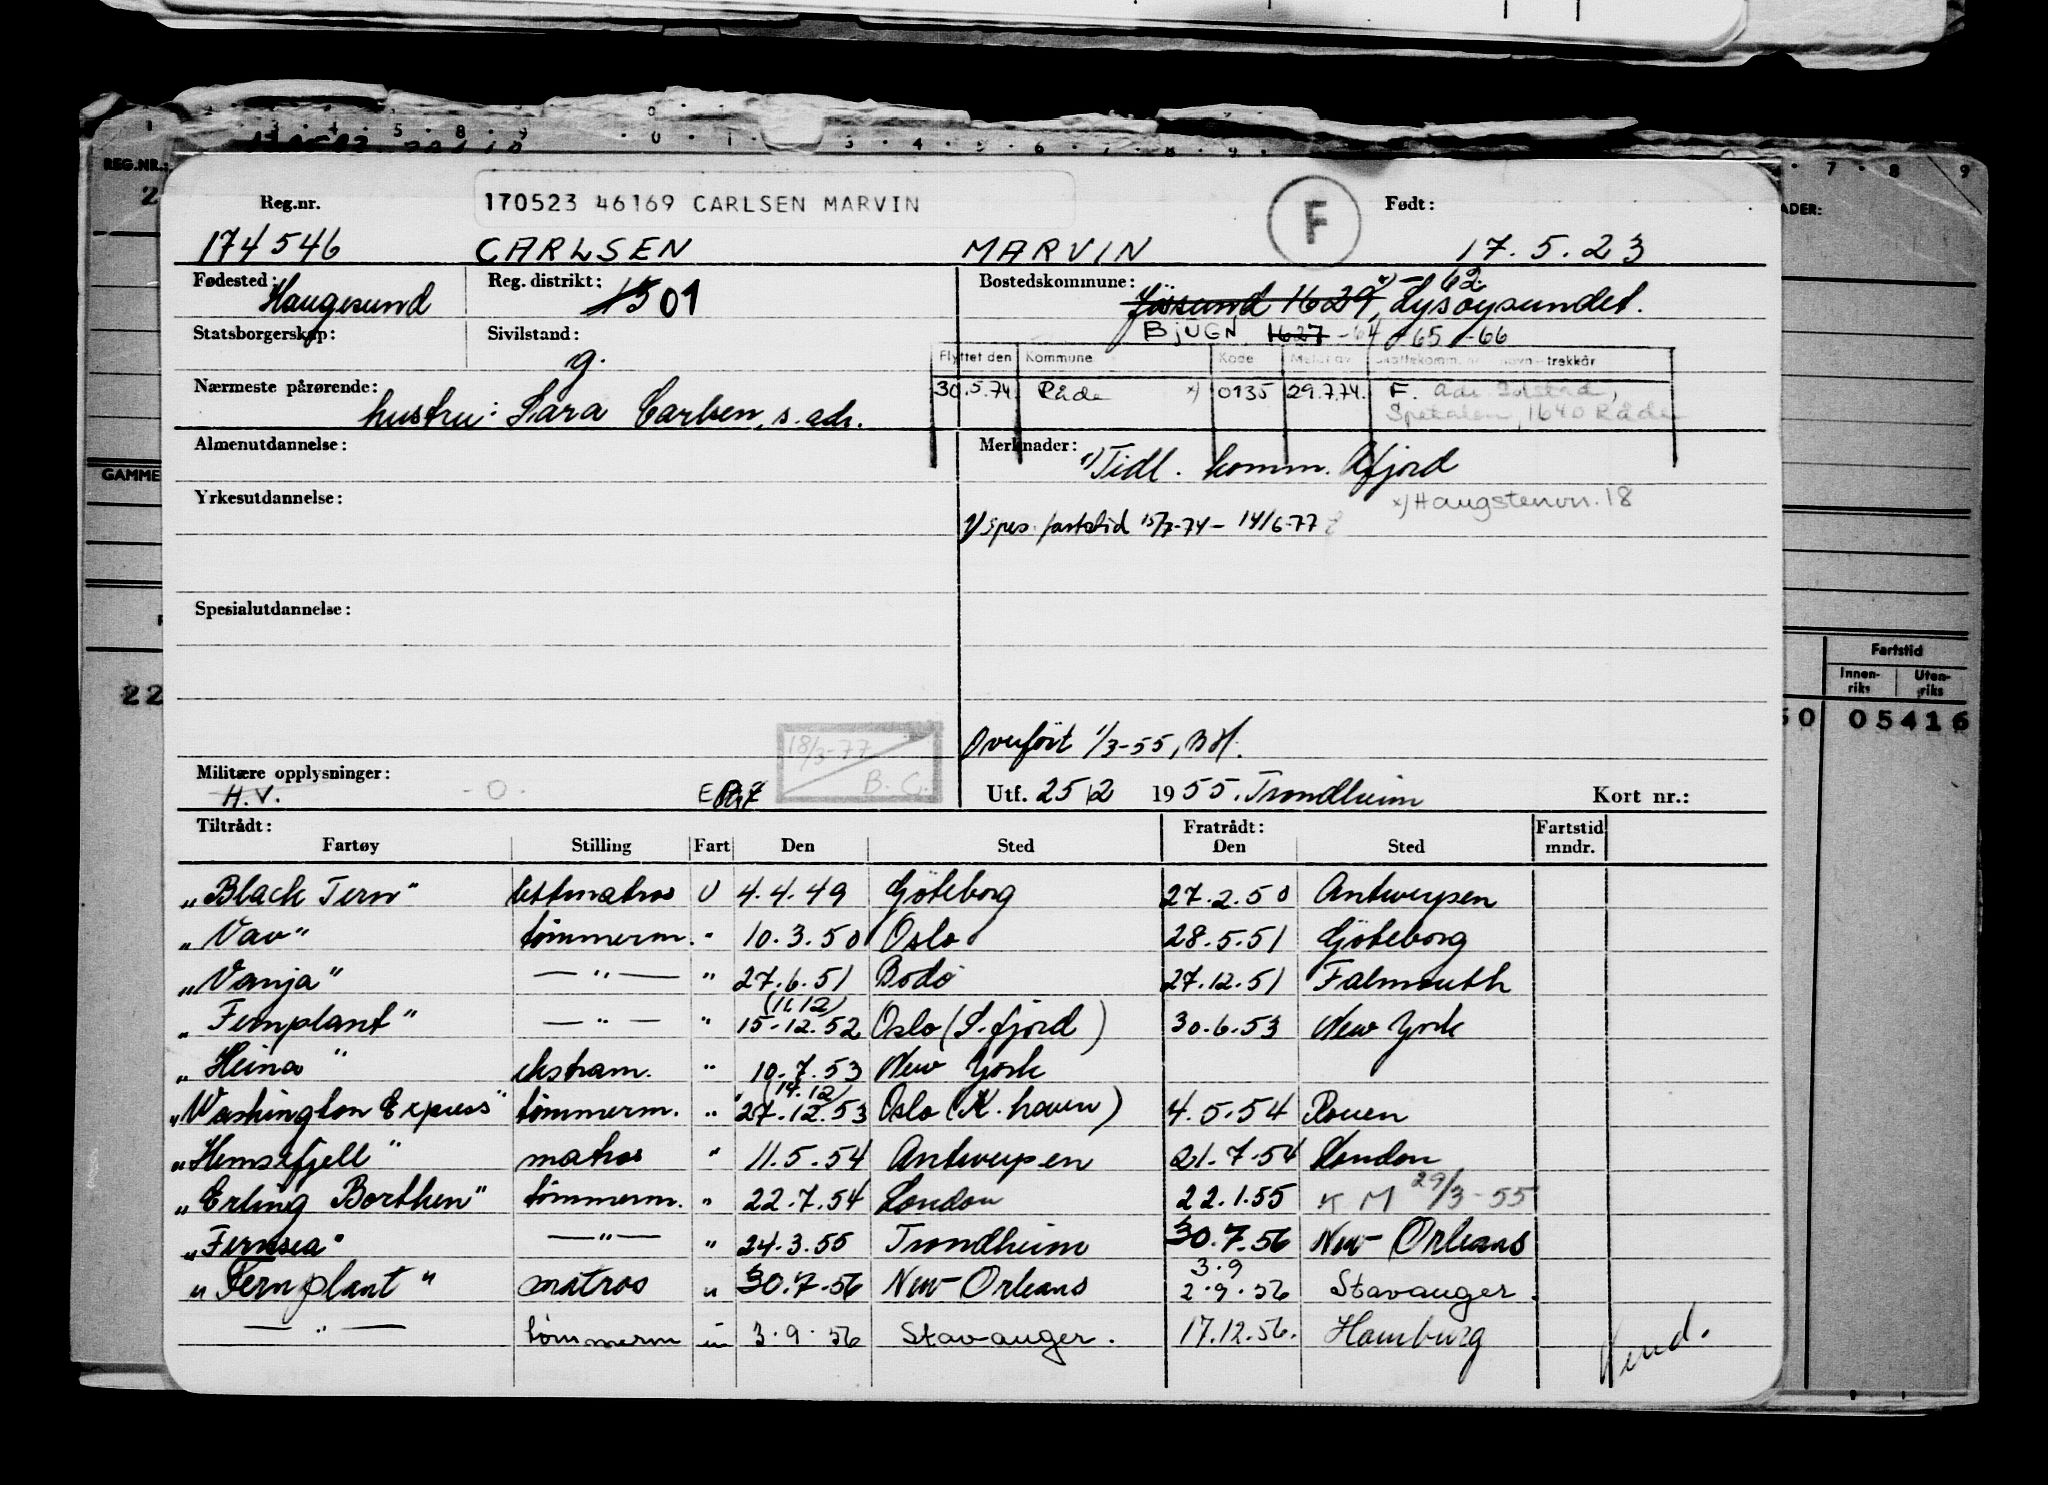 REG.NR.:
Reg.nr.
170523 46169 CARLSEN MARVIN
F
Født:
174546 CARLSEN MARVIN 17.5.23
Fødested: Haugesund
Reg. distrikt: 1501
Bostedskommune: Jøssund 1629, Lysøysundet. -62
BJUGN 1627 -64 -65 -66
Statsborgerskap:
Sivilstand: g.
Flyttet den Kommune Kode Meldt av trekkår
30.5.74 Råde x) 0135 29.7.74. F. adr.
Spetalen, 1640 Råde
Nærmeste pårørende: hustru: Sara Carlsen, s. adr.
Almenutdannelse:
Merknader: Tidl. komm. Åfjord
x) Haugstenvn. 18
Yrkesutdannelse:
Spes. fartstid 15/7-74 - 14/6-77
Spesialutdannelse:
Fartstid
Innen-riks Uten-riks
05416
Overført 1/3-55, BH.
18/3-77
B. G.
Militære opplysninger:
H.V. -0.
Utf. 25/2 1955. Trondheim Kort nr.:
Tiltrådt: Fratrådt: Fartstid
Fartøy Stilling Fart Den Sted Den Sted mndr.
"Black Tern" lettmatros U 4.4.49 Göteborg 27.2.50 Antwerpen
"Vav" tømmerm. " 10.3.50 Oslo 28.5.51 Göteborg
"Vanja" — " — " 27.6.51 Bodø 27.12.51 Falmouth
(11.12)
"Fernplant" — " — " 15.12.52 Oslo (S.fjord) 30.6.53 New York
"Heina" ekstram. " 10.7.53 New York
(14.12)
"Washington Express" tømmerm. " 27.12.53 Oslo (K.havn) 4.5.54 Rouen
"Hemsefjell" matros " 11.5.54 Antwerpen 21.7.54 London
"Erling Borthen" tømmerm. " 22.7.54 London 22.1.55 K M 29/3-55
"Fernsea" — " — " 24.3.55 Trondheim 30.7.56 New-Orleans
3.9
"Fernplant" matros " 30.7.56 New-Orleans 2.9.56 Stavanger.
— " — tømmerm " 3.9.56 Stavanger. 17.12.56. Hamburg
Vend.